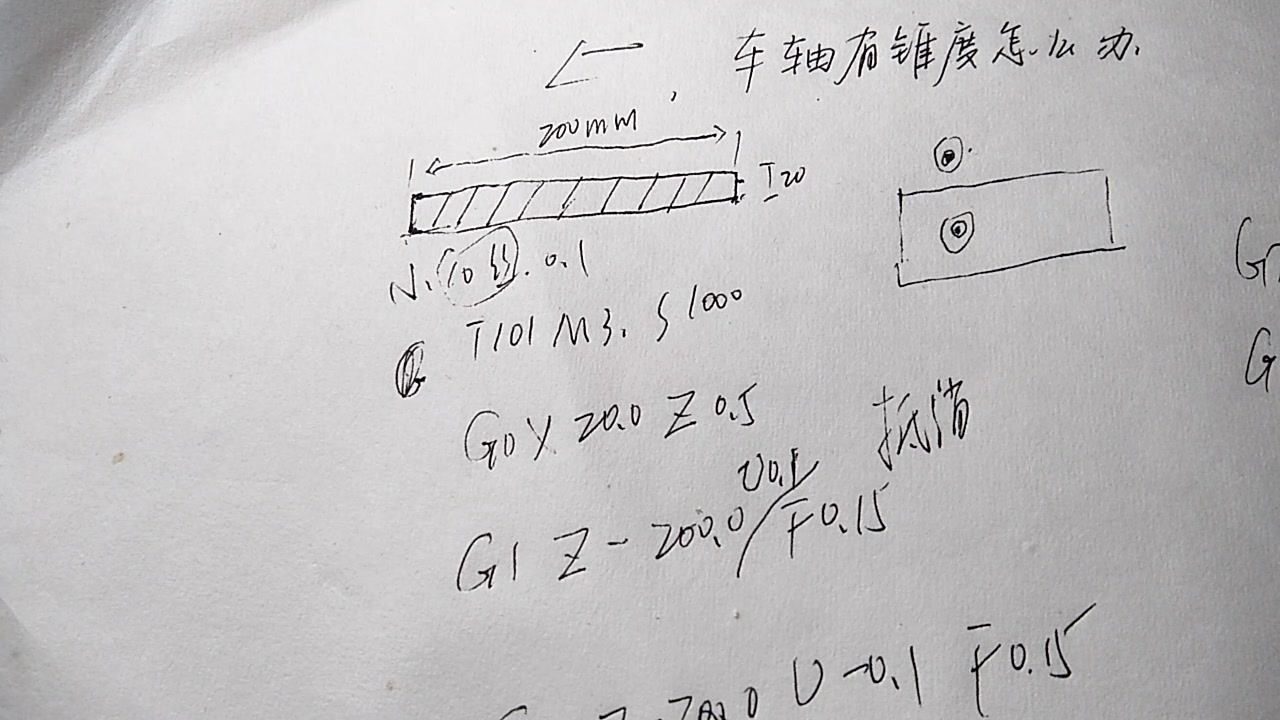 车轴有锥度怎么办.
200mm
20
N. 10丝. 0.1
T101 M3. S1000
G0 X 20.0 Z 0.5
抵消
U0.1
G1 Z-200.0 / F0.15
U-0.1 F0.15
G